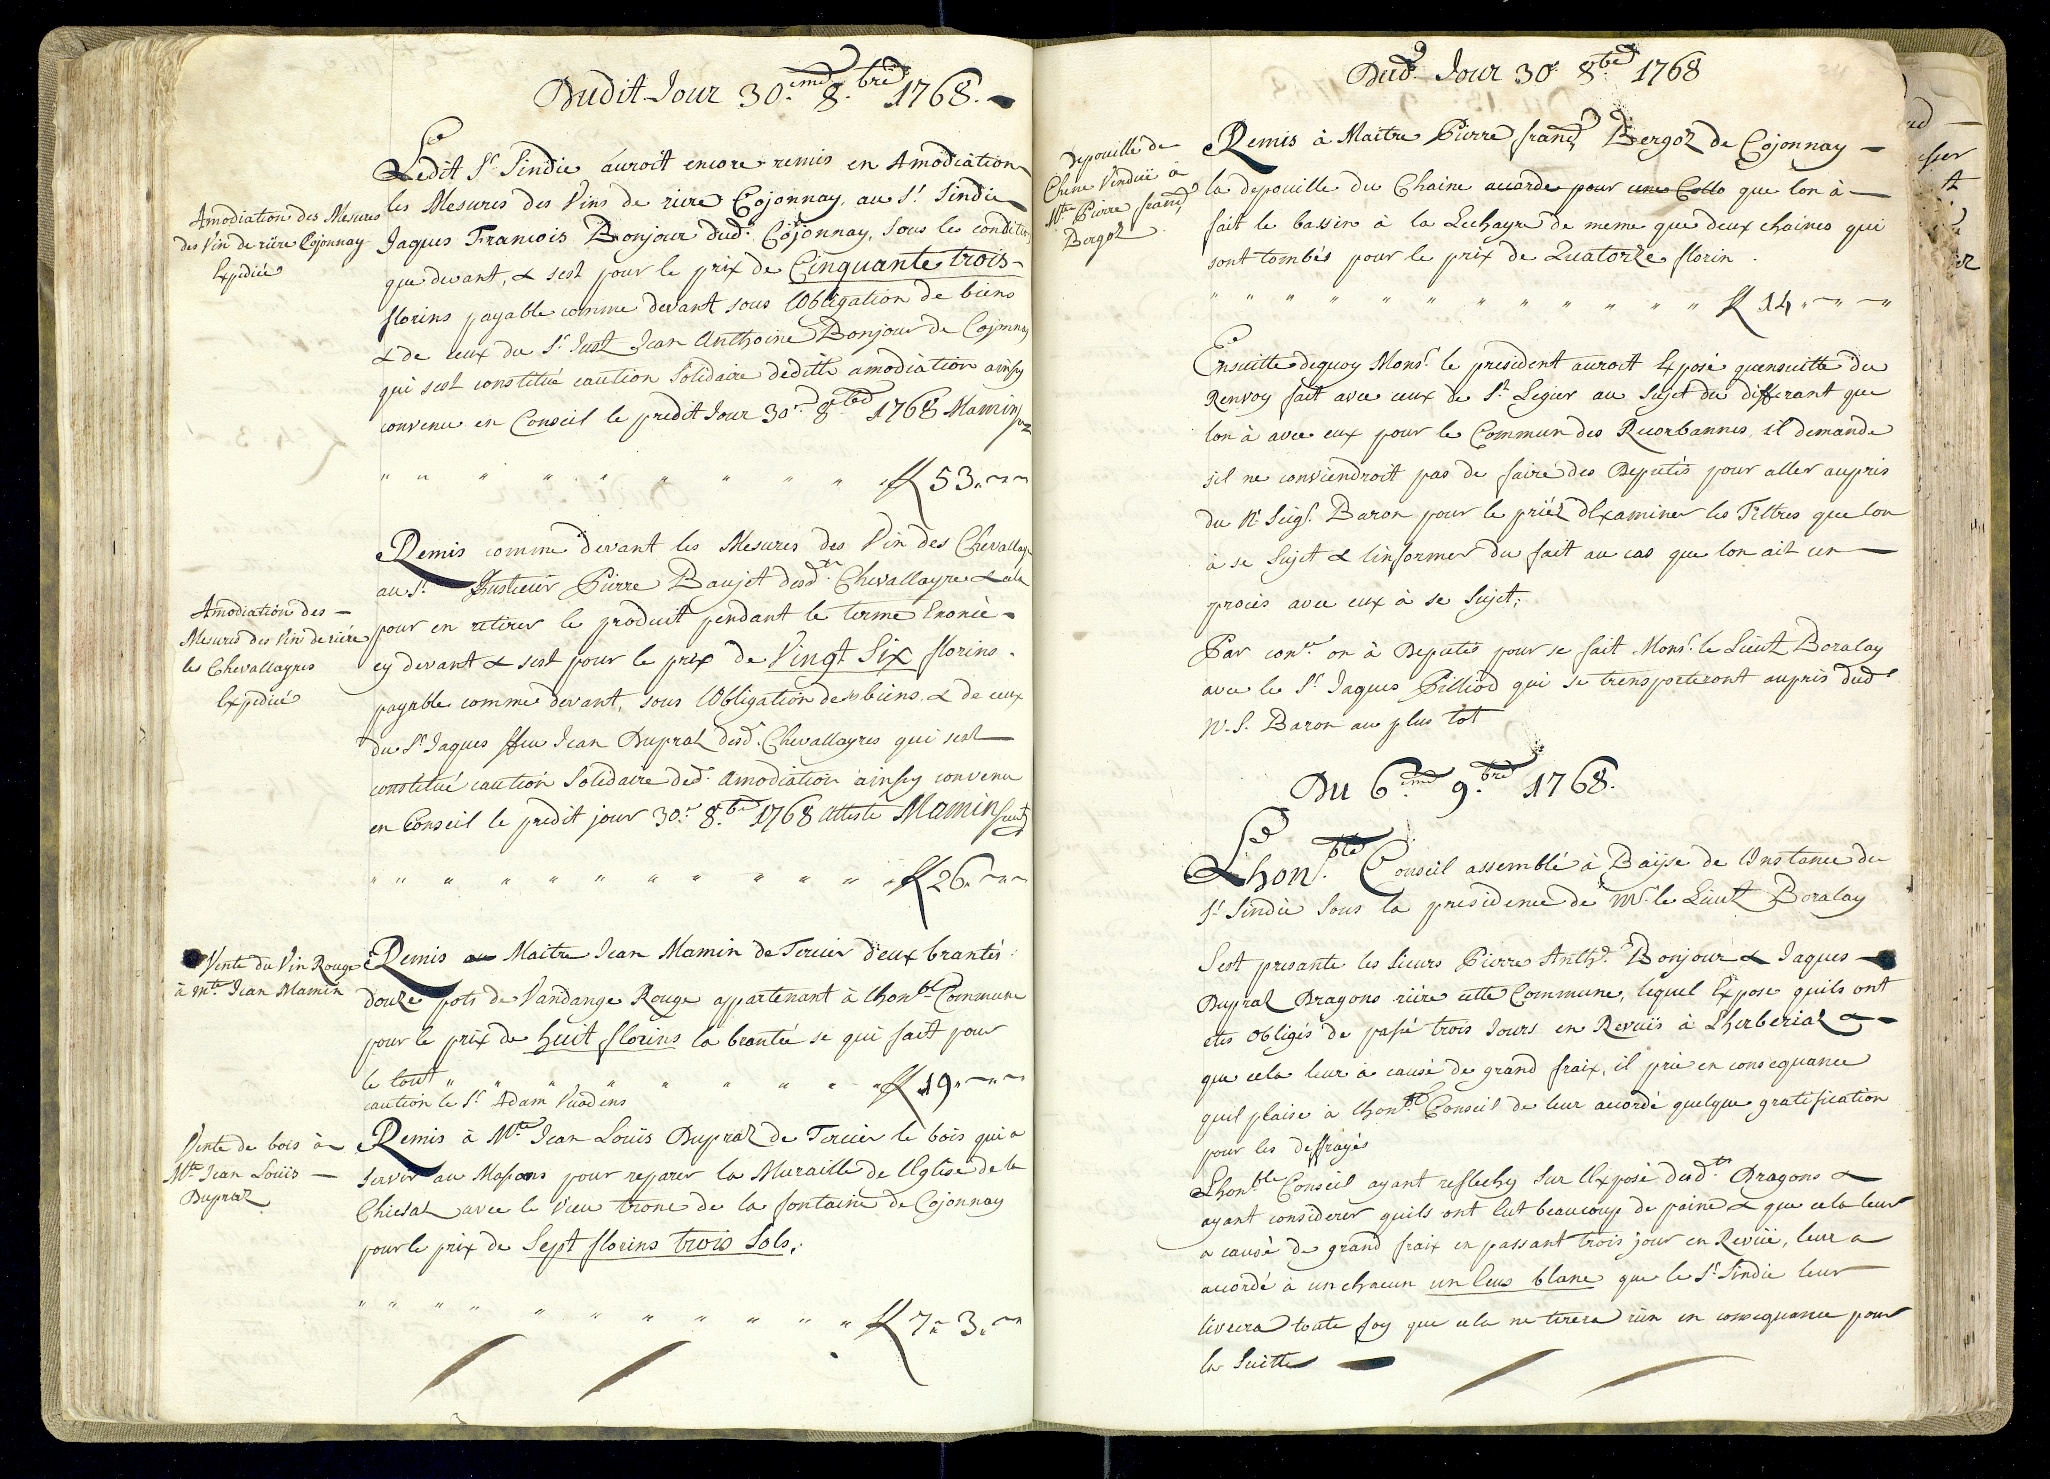 Dudit Jour 30.eme 8.bre 1768.
Amodiation des Mesures
des Vin de riere Cojonnay
Expediée
Ledit Sr Sindic auroit encore remis en Amodiation
les Mesures des Vins de riere Cojonnay, au Sr Sindic
Jaques Francois Bonjour dud. Cojonnay, sous les condition
que devant, & sest pour le prix de Cinquante trois
florins payable comme devant sous lObligation de biens
& de ceux du Sr Just Jean Anthoine Bonjour de Cojonnay
qui sest constitué caution Solidaire dedite amodiation ainsy
convenu en Conseil le predit Jour 30e 8bre 1768 Mamin
" " " " " " " " " ff 53 " ~ " ~
Amodiation des
Mesures des Vin de riére
les Chevallayres
Expedié
Remis comme devant les Mesures des Vin des Chevallay
au Sr Justicier Pierre Baujet desd.tes Chevallayre &
pour en retirer le produit pendant le terme Enoncé
cy devant & sest pour le prix de Vingt Six florins.
payable comme devant, sous lObligation de ses biens & de ceux
du Sr Jaques ffeu Jean Dupraz desd. Chevallayres qui sest
constitué caution Solidaire ded. Amodiation ainsy convenu
en Conseil le predit jour 30.e 8.bre 1768 atteste Mamin
" " " " " " " " " " " ff 26 " ~ " ~
Vente du Vin Rouge
à Mtre Jean Mamin
Remis au Maitre Jean Mamin de Tercier deux brantés
douze pots de Vandange Rouge appartenant à lhonble Commune
pour le prix de huit florins la brantée se qui fait pour
le tout " " " " " " " " ff 19 " ~ " ~
caution le Sr Adam Vuadens
Vente de bois à
Mtre Jean Louis
Dupraz
Remis à Mtre Jean Louis Dupraz de Tercier le bois qui a
servir au Massons pour reparer la Muraille de lEglise de la
Chiesaz avec le Vieu tronc de la fontaine de Cojonnay
pour le prix de Sept florins trois Sols.
" " " " " " " " " " " ff 7 " 3 " ~
Dud. Jour 30e 8bre 1768
Depouille de
Chene Vendue à
Mtre Pierre franç
Bergoz
Remis à Maitre Pierre franç Bergoz de Cojonnay
la depouille du Chaine acorde pour que lon à
fait le bassin à la Lechayre de meme que deux chaines qui
sont tombés pour le prix de Quatorze florin.
" " " " " " " " " " " " ff 14 " ~ " ~
Ensuitte dequoy Monsr le president auroit Exposé quensuitte du
Renvoy fait avec ceux de St Legier au Sujet du differant que
lon à avec eux pour le Commun des Recorbannes, il demande
sil ne conviendroit pas de faire des Deputés pour aller aupres
du N. Seigr Baron pour le prier dExaminer les Tittres que lon
à se Sujet & linformer du fait au cas que lon ait un
proces avec eux à se Sujet;
Par con.. on à Deputés pour se fait Monsr le Lieut Boralay
avec le Sr Jaques Pilliod qui se transporteront aupres dud
N. S. Baron au plus tot
Du 6.eme 9.bre 1768.
Lhonble Conseil assemblé à Bayse de lInstance du
Sr Sindic Sous la presidence de Mr le Lieut Boralay
Sest presante les Sieurs Pierre Anthe Bonjour & Jaques
Dupraz Dragons riére cette Commune, lequel Expose quils ont
etés Obligés de passé trois Jours en Revüs à Lherberiaz &
que cela leur à causé de grand fraix, il prie en consequance
quil plaise à lhonble Conseil de leur acordé quelque gratification
pour les deffrayés
Lhonble Conseil ayant reflechy Sur lExposé desd.ts Dragons &
ayant considerer quils ont Eut beaucoup de paine & que cela leur
a causé de grand fraix en passant trois jour en Revüe, leur a
acordé à un chacun un Ecus blanc que le Sr Sindic leur
livrera toute foy que cela ne tirera rien en consequance pour
la Suitte